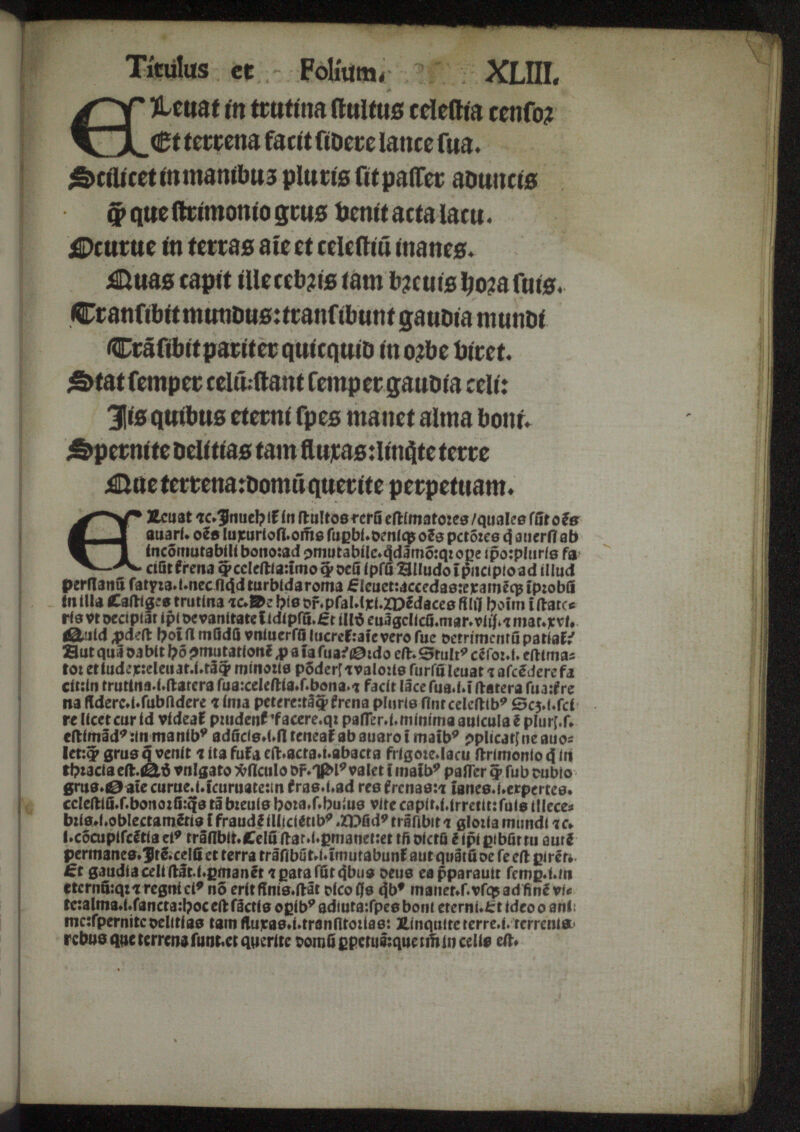 Titulus et Folium. XLIII.
ELeuat in trutina stultus celestia censoꝛ
Et terrena facit sidere lance sua.
Scilicet in manibus pluris sit passer aduncis
q̄ȝ que strimonio grus venit acta lacu.
O curue in terras aīe et celestiū inanes.
Quas capit illecebꝛis tam bꝛeuis hoꝛa suis.
Transibit mundus: transibunt gaudia mundi
Trāsibit pariter quicquid in oꝛbe viret.
Stat semper celū: stant semper gaudia celi:
Iis quibus eterni spes manet alma boni.
Spernite delitias tam fluxas: linq̄te terre
Que terrena: domū querite perpetuam.
ELeuat ⁊c. Inueh if in stultos rerū estimatoꝛes / quales sūt oēs
auari. oēs luxuriosi. om̄s supbi. deniqꝫ oēs pctōꝛes q̇ auersi ab
incōmutabili bono: ad ꝯmutabile. qdāmō: qꝛ ope ip̄o: pluris fa
ciūt frena q̄ȝ celestia: īmo q̄ȝ deū ipsū Alludo ī pͥncipio ad illud
persianū satyra. i. nec siqd turbida roma Eleuet: accedas: examēqꝫ īpꝛobū
in illa Castiges trutina ⁊c. De his dr̄. psal. lxi. Mēdaces filij hoīm ī state⸗
ris vt decipiāt ip̄i de vanitate ī idipsū. Et illḋ euāgelicū. mar. viij. ⁊ mat. xvi.
Quid ꝓdest hoī si mūdū vniuersū lucret: aīe vero sue detrimentū patiat?
Aut quā dabit hō ꝯmutationē ꝓ aīa sua? Oꝛdo est. Stultꝰ cēsoꝛ. i. estima⸗
toꝛ et iudex: eleuat. i. tāq̄ȝ minoꝛis pōderꝭ ⁊ valoꝛis sursū leuat ⁊ ascēdere fa
cit: in trutina. i. statera sua: celestia. s. bona. ⁊ facit lāce sua. i. ī statera sua: fre
na sidere. i. subsidere ⁊ ima petere: tāq̄ȝ frena pluris sint celestibꝰ Scꝫ. i. sci
re licet cur id videat pꝛudent facere. qꝛ passer. i. minima auicula ē plurꝭ. s.
estimādꝰ: in manibꝰ adūcis. i. si teneat ab auaro ī maībꝰ ꝯplicatꝭ ne auo⸗
let: q̄ȝ grus q̄ venit ⁊ ita fusa est. acta. i. abacta frigoꝛe. lacu strimonio q̇ in
thꝛacia est. Qḋ vulgato v̄siculo dr̄. Plꝰ valet ī maībꝰ passer q̄ȝ sub dubio
grus. O aīe curue. i. īcuruate: in fras. i. ad res frenas: ⁊ īanes. i. expertes.
celestiū. s. bonoꝛū: q̄s tā bꝛeuis hoꝛa. s. huius vite capit. i. irretit: suis illece⸗
bꝛis. i. oblectamētis ī fraudē illiciētibꝰ. Mūdꝰ trāsibit ⁊ gloꝛia mundi ⁊c.
i. cōcupiscētia eiꝰ trāsibit. Celū stat. i. ꝑmanet: et tn̄ dictū ē ip̄i ꝑibūt tu autē
permanes. Itē. celū et terra trāsibūt. i. īmutabunt aut quātū de se est ꝑirēt.
Et gaudia celi stāt. i. ꝑmanēt ⁊ ꝑata sūt qͥbus deus ea pͥparauit semꝑ. i. in
eternū: qꝛ ⁊ regni eiꝰ nō erit finis. stāt dico iis qͥbꝰ manet. s. vsqꝫ ad finē vi⸗
te: alma. i. sancta: hoc est sāctis opibꝰ adiuta: spes boni eterni. Et ideo o ani⸗
me: spernite delitias tam fluxas. i. transitoꝛias: Linquite terre. i. terrenis
rebus que terrena sunt. et querite domū ꝑpetuā: que tm̄ in celis est.